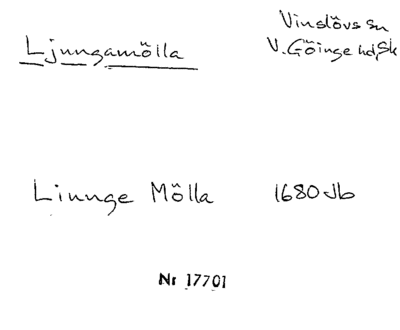 Ljungamölla
Vinslövs sn
V. Göinge hd, Sk
Liunge Mölla 1680 Jb
Nr 17701